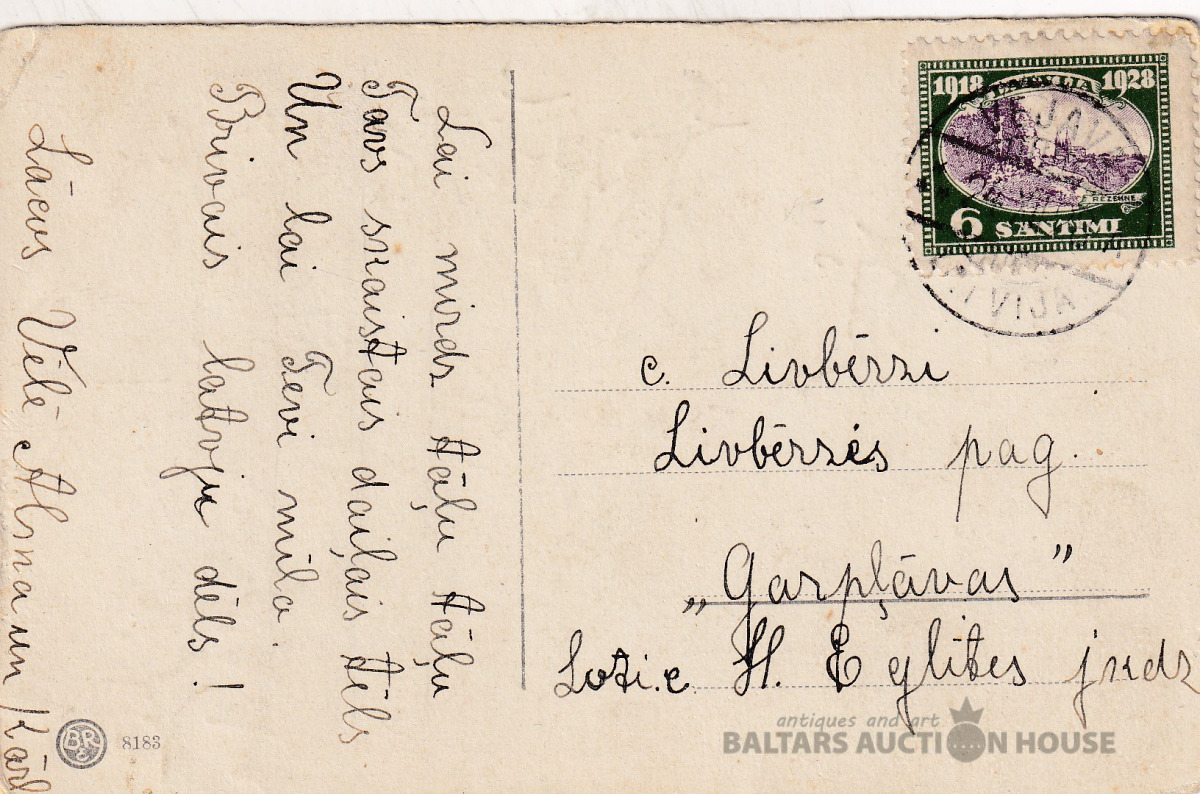 Lai mirdz tāļu tāļu
Tavs skaistais daiļais tēls
Un lai Tevi mīlo.
Brivais latvju dēls!
Vēlē Alma un Kārl
1918 LATVIJA 1928
REZEKNE
6 SANTIMI
c. Livbērzi
Livbērzes pag.
„Garpļāvas”
H. Eglites jkdz
BR
8183
antiques and art
BALTARS AUCTION HOUSE